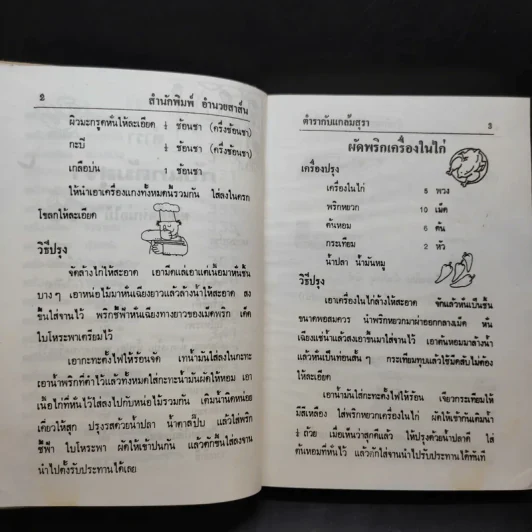 2 สำนักพิมพ์ อำนวยสาส์น
ผิวมะกรูดหั่นให้ละเอียด ½ ช้อนชา (ครึ่งช้อนชา)
กะปิ ½ ช้อนชา (ครึ่งช้อนชา)
เกลือป่น ช้อนชา
ให้นำเอาเครื่องแกงทั้งหมดนี้รวมกัน ใส่ลงในครก
โขลกให้ละเอียด
วิธีปรุง
จัดล้างไก่ให้สะอาด เอามีดแล่เอาแต่เนื้อมาหั่นชิ้น
บาง ๆ เอาหน่อไม้มาหั่นเฉียงยาวแล้วล้างน้ำให้สะอาด สง
ขึ้นใส่จานไว้ พริกชี้ฟ้าหั่นเฉียงทางยาวของเม็ดพริก เด็ด
ใบโหระพาเตรียมไว้
เอากะทะตั้งไฟให้ร้อนจัด เทน้ำมันใส่ลงในกะทะ
เอาน้ำพริกที่ตำไว้แล้วทั้งหมดใส่กะทะน้ำมันผัดให้หอม เอา
เนื้อไก่ที่หั่นไว้ใส่ลงไปกับหน่อไม้รวมกัน เติมน้ำนิดหน่อย
เคี่ยวให้สุก ปรุงรสด้วยน้ำปลา น้ำตาลปี๊บ แล้วใส่พริก
ชี้ฟ้า ใบโหระพา ผัดให้เข้าปนกัน แล้วตักขึ้นใส่ลงจาน
นำไปตั้งรับประทานได้เลย
ตำรากับแกล้มสุรา 3
ผัดพริกเครื่องในไก่
เครื่องปรุง
เครื่องในไก่ 5 พวง
พริกหยวก 10 เม็ด
ต้นหอม 6 ต้น
กระเทียม 2 หัว
น้ำปลา น้ำมันหมู
วิธีปรุง
เอาเครื่องในไก่ล้างให้สะอาด จัดแล้วหั่นเป็นชิ้น
ขนาดพอสมควร นำพริกหยวกมาผ่าออกกลางเม็ด หั่น
เฉียงแช่น้ำแล้วสงเอาขึ้นมาใส่จานไว้ เอาต้นหอมมาล้างน้ำ
แล้วหั่นเป็นท่อนสั้น ๆ กระเทียมทุบแล้วใช้มีดสับไม่ต้อง
ให้ละเอียด
เอาน้ำมันใส่กะทะตั้งไฟให้ร้อน เจียวกระเทียมให้
มีสีเหลือง ใส่พริกหยวกเครื่องในไก่ ผัดให้เข้ากันเติมน้ำ
½ ถ้วย เมื่อเห็นว่าสุกดีแล้ว ให้ปรุงด้วยน้ำปลาดี ใส่
ต้นหอมที่หั่นไว้ แล้วตักใส่จานนำไปรับประทานได้ทันที